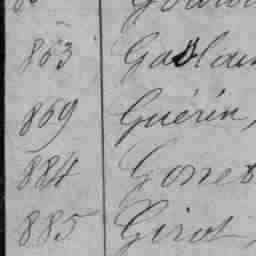 863 Gaslain
869 Guérin,
884 Gosset
885 Girot,